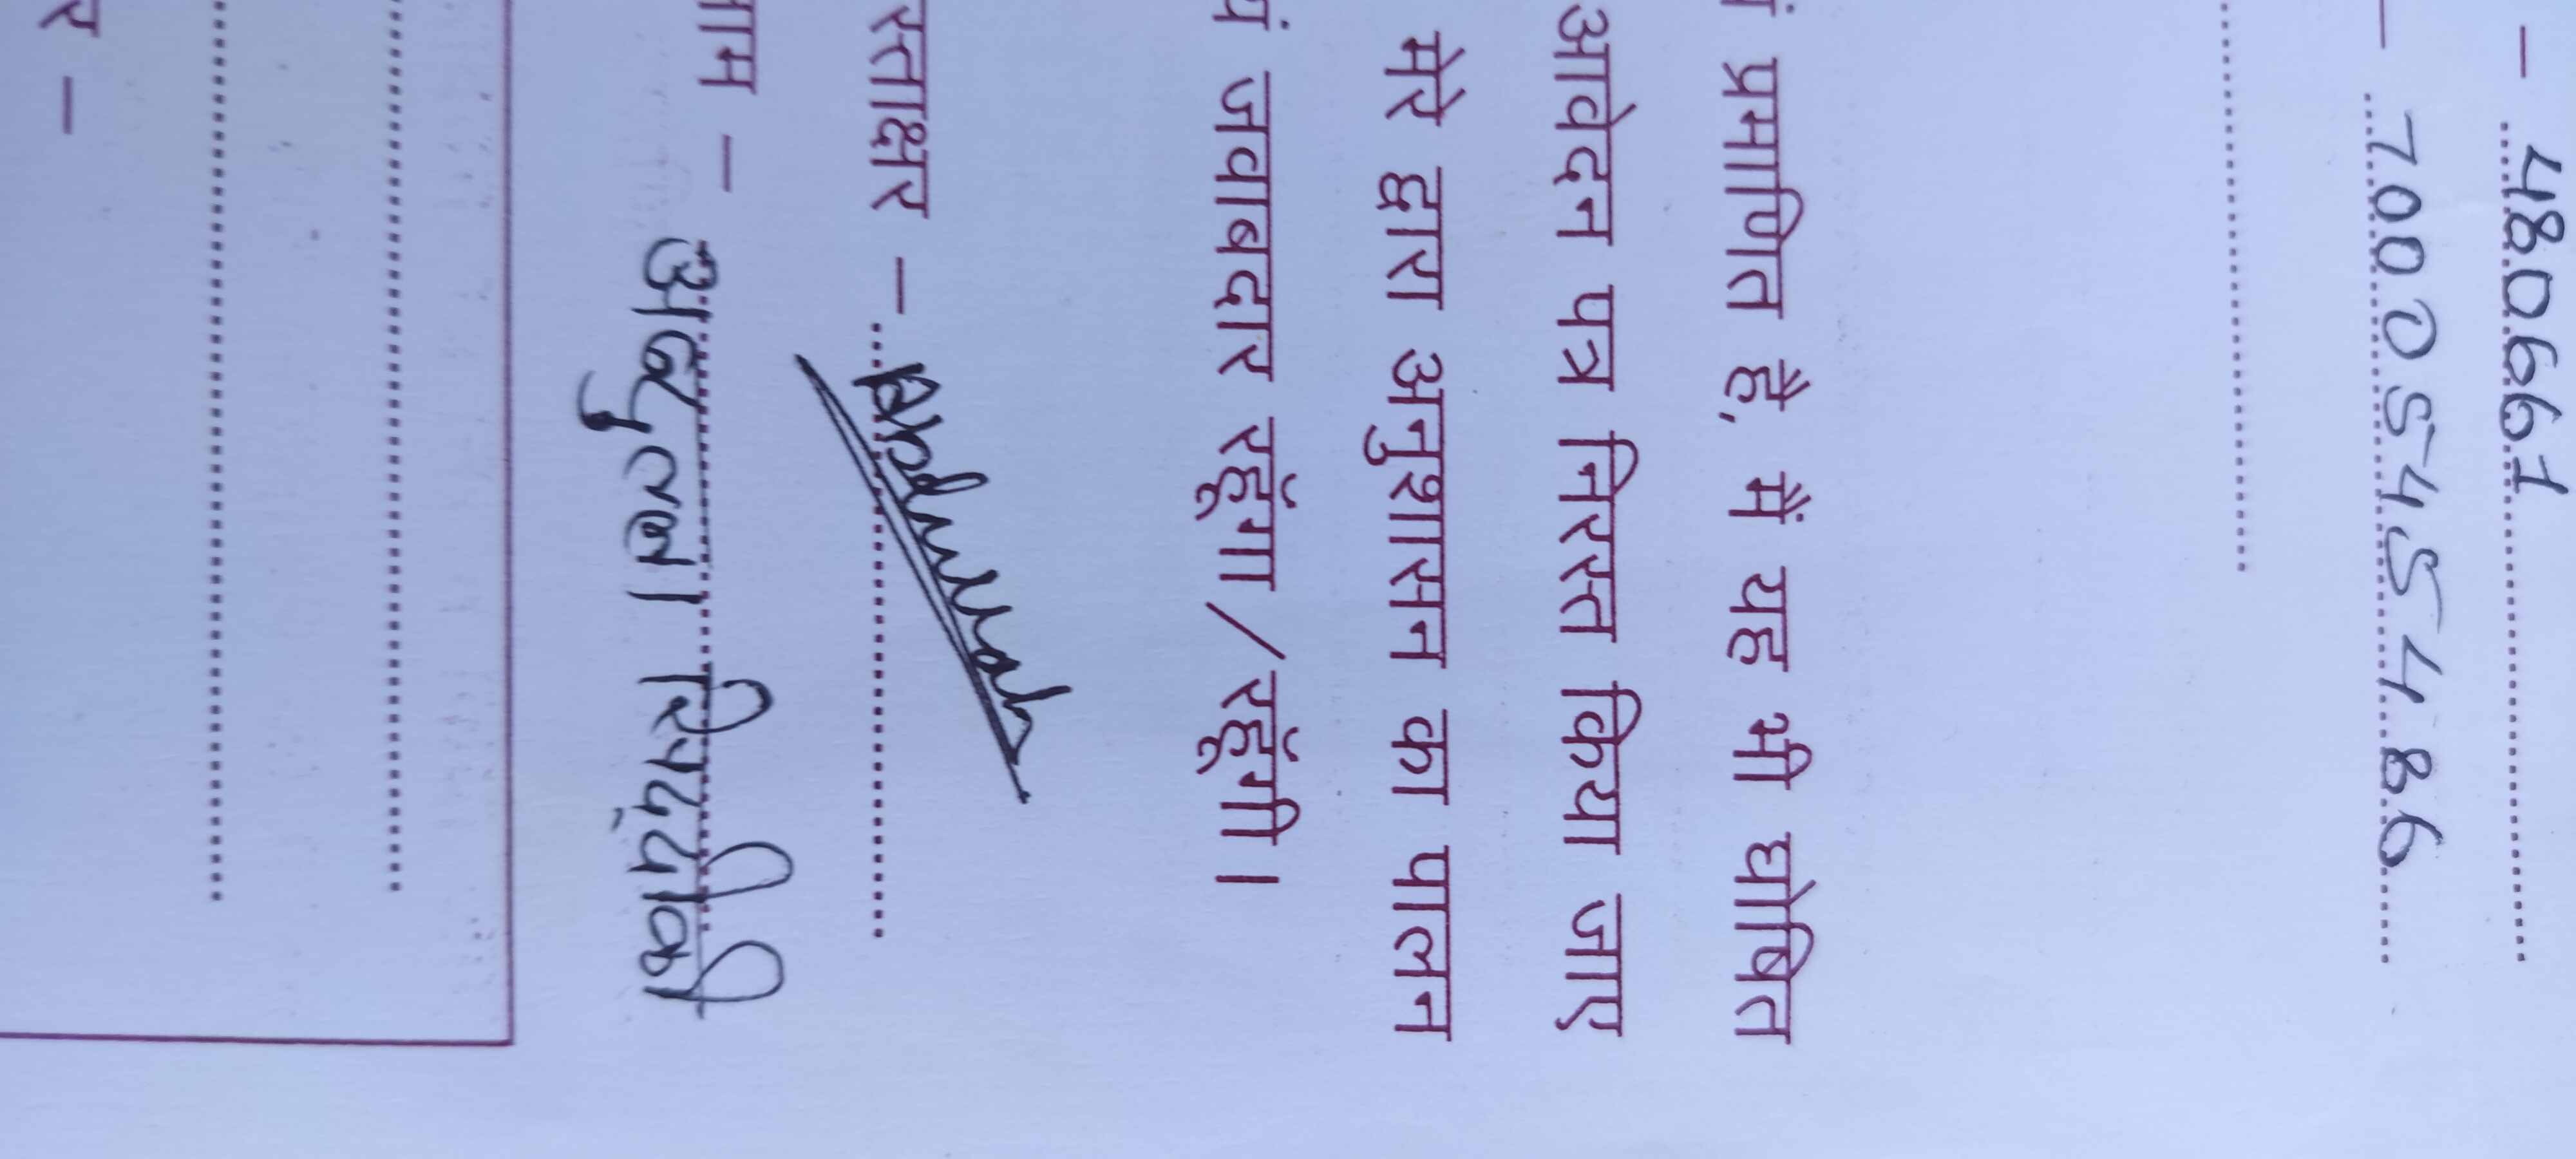 - 480661
- 7000545486
प्रमाणित है, मैं यह भी घोषित
आवेदन पत्र निरस्त किया जाए
मेरे द्वारा अनुशासन का पालन
जवाबदार रहूँगा/रहूँगी।
स्ताक्षर - Abdullah
नाम - अब्दुल्ला सिद्दीकी
र -